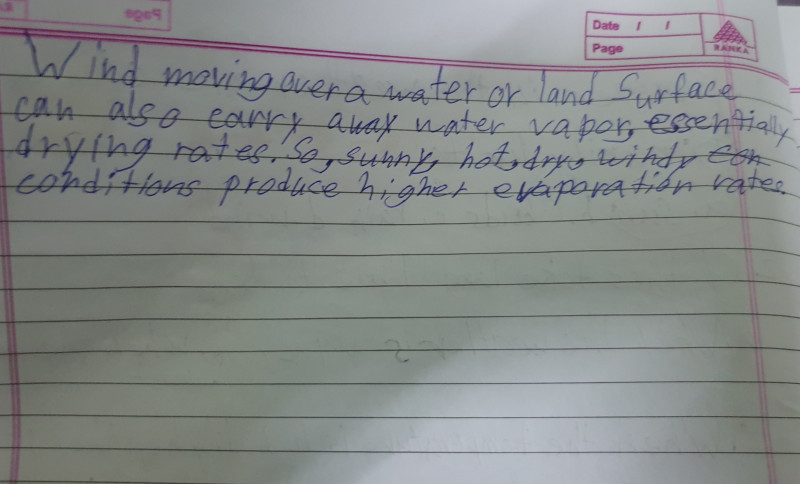 Page
Date / /
Page
RANKA
Wind moving over a water or land Surface
can also carry away water vapor, essentially
drying rates. So, sunny, hot, dry, windy con
conditions produce higher evaporation rates.